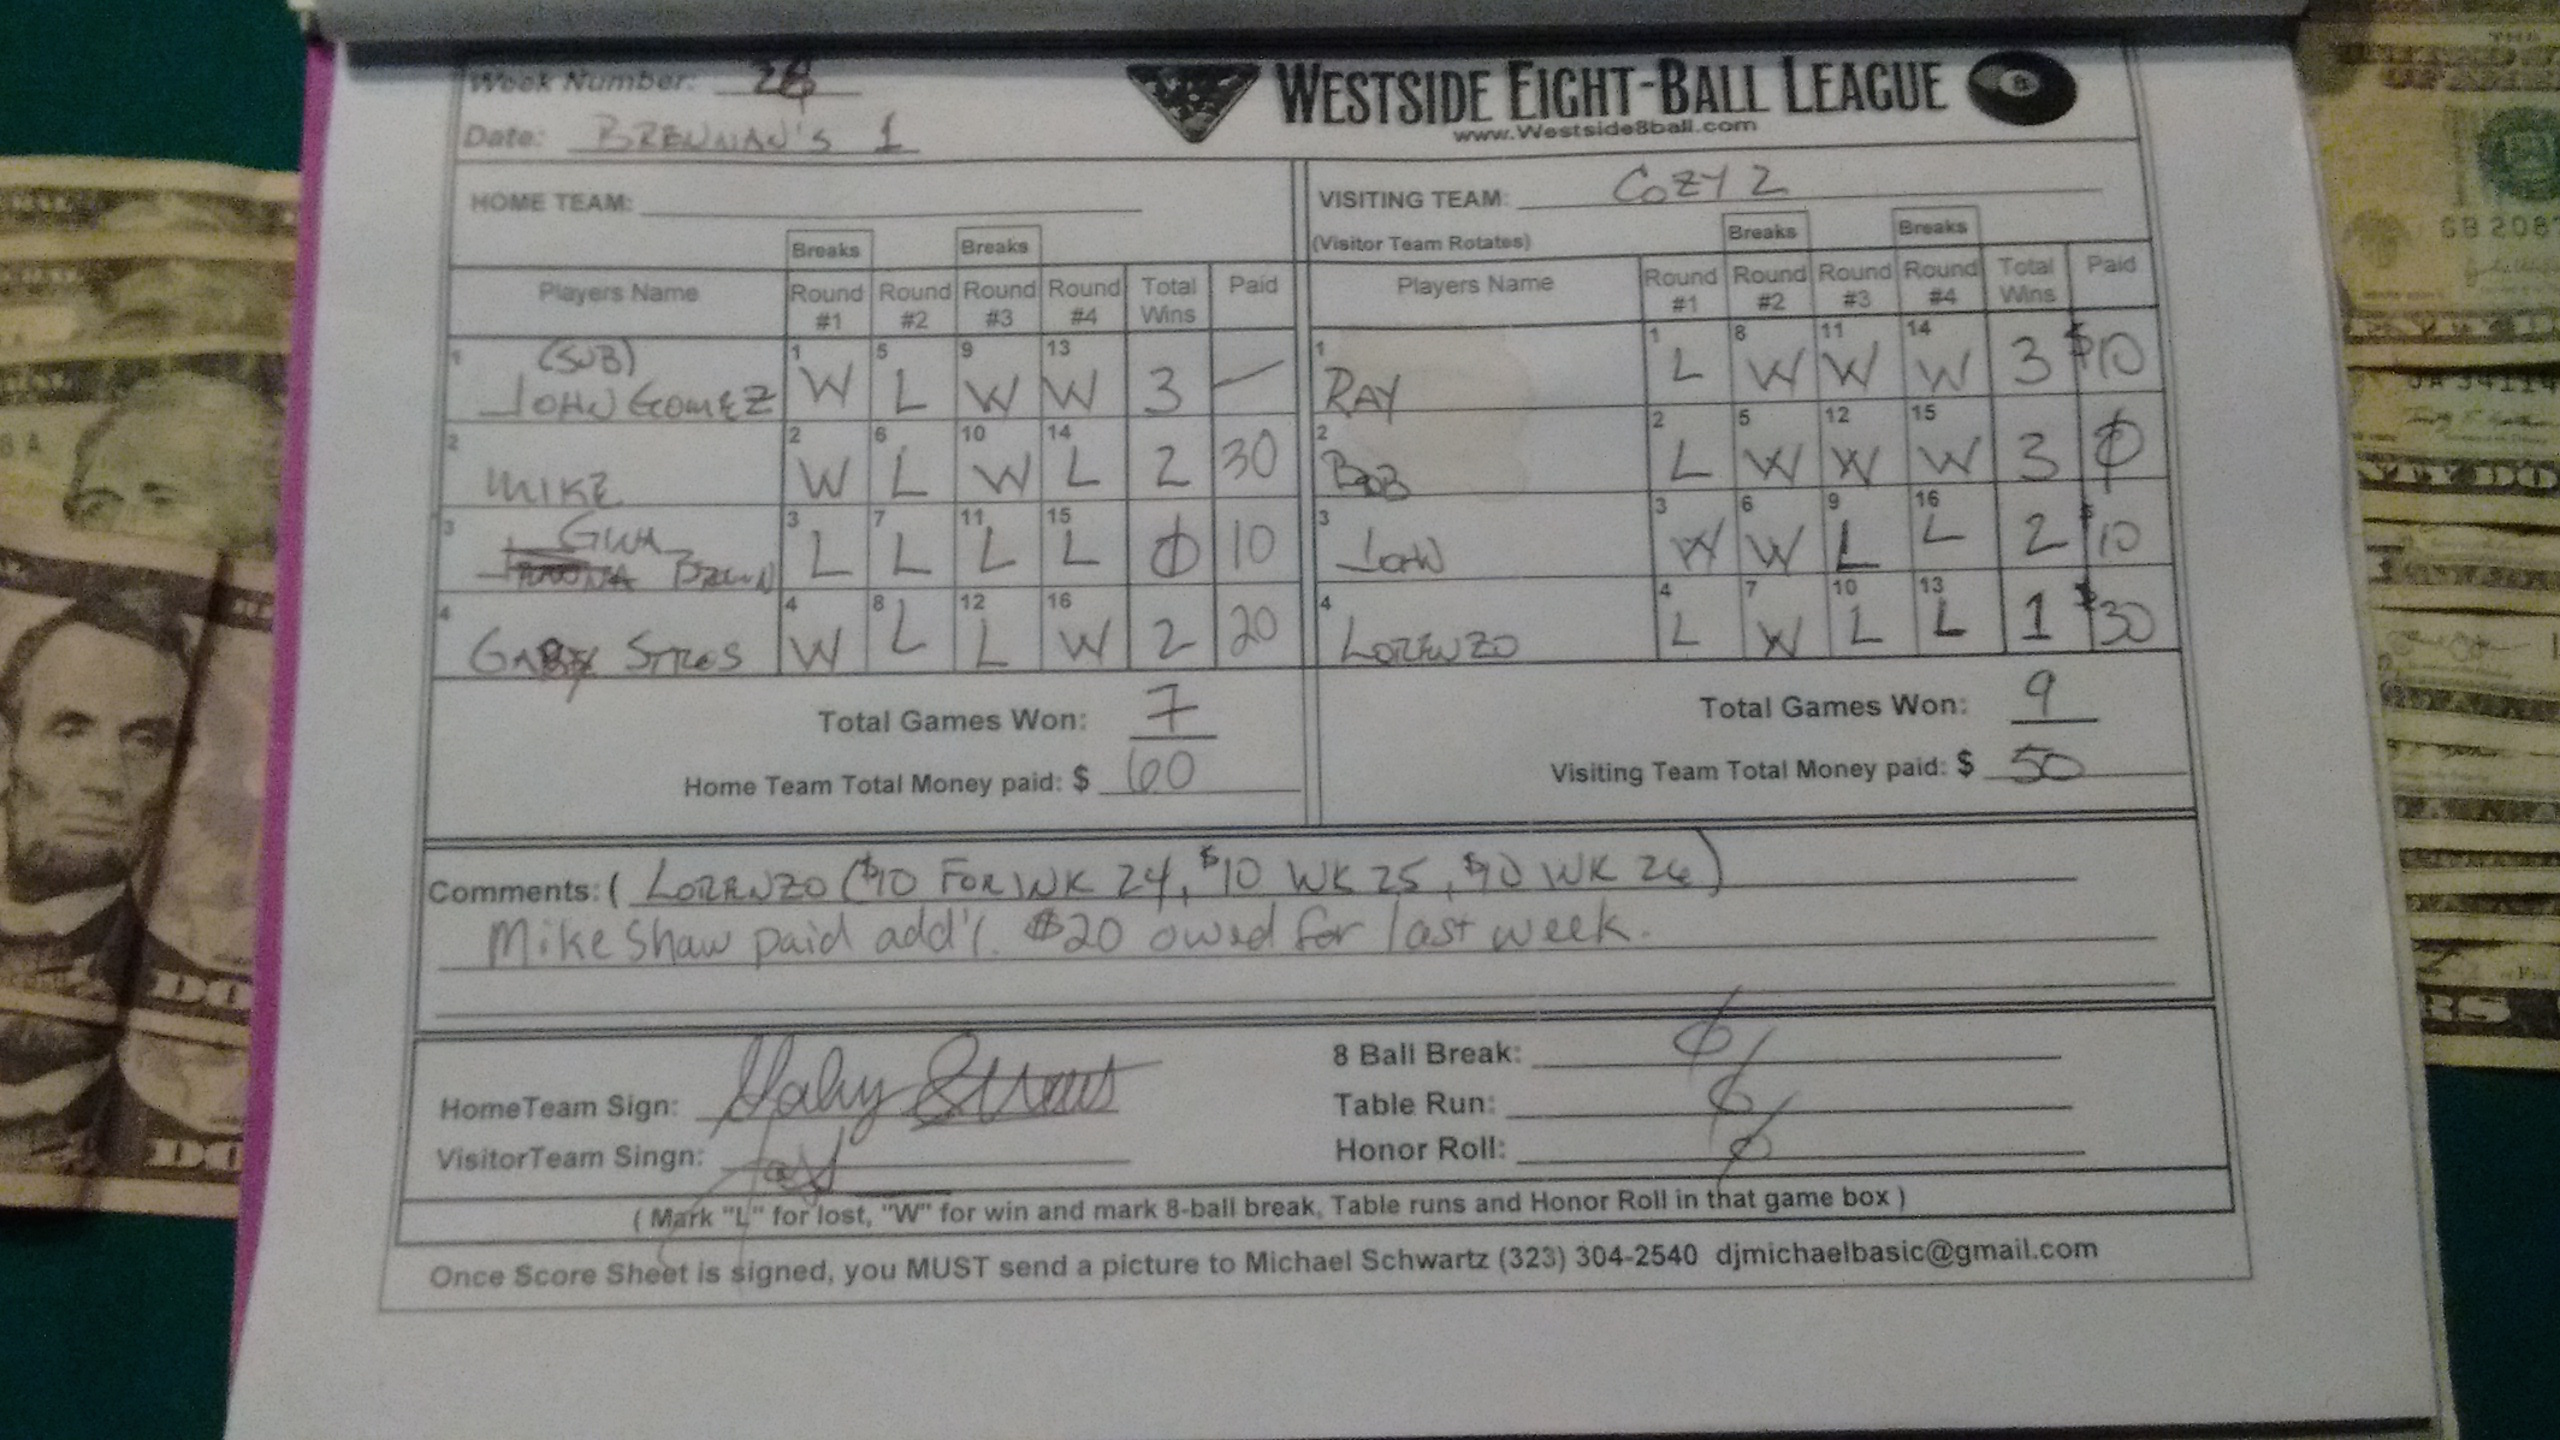 Week Number: 26
WESTSIDE EIGHT-BALL LEAGUE
8
www.Westside8ball.com
Date: BRENNAN'S 1
HOME TEAM:
VISITING TEAM: COZY 2
(Visitor Team Rotates)
Breaks Breaks
Breaks Breaks
Players Name Round #1 Round #2 Round #3 Round #4 Total Wins Paid
1 (SUB) JOHN GOMEZ 1 W 5 L 9 W 13 W 3 —
2 MIKE 2 W 6 L 10 W 14 L 2 30
3 3 L 7 L 11 L 15 L 0 10
4 GABY 4 W 8 L 12 L 16 W 2 20
Total Games Won: 7
Home Team Total Money paid: $ 60
Players Name Round #1 Round #2 Round #3 Round #4 Total Wins Paid
1 RAY 1 L 8 W 11 W 14 W 3 $10
2 BOB 2 L 5 W 12 W 15 W 3 0
3 3 W 6 W 9 L 16 L 2 $10
4 LORENZO 4 L 7 W 10 L 13 L 1 $30
Total Games Won: 9
Visiting Team Total Money paid: $ 50
Comments: ( LORENZO ($10 FOR WK 24, $10 WK 25, $10 WK 26)
Mike Shaw paid add'l. $20 owed for last week.
HomeTeam Sign: Gaby
VisitorTeam Singn:
8 Ball Break: 0
Table Run: 0
Honor Roll: 0
( Mark "L" for lost, "W" for win and mark 8-ball break, Table runs and Honor Roll in that game box )
Once Score Sheet is signed, you MUST send a picture to Michael Schwartz (323) 304-2540 djmichaelbasic@gmail.com